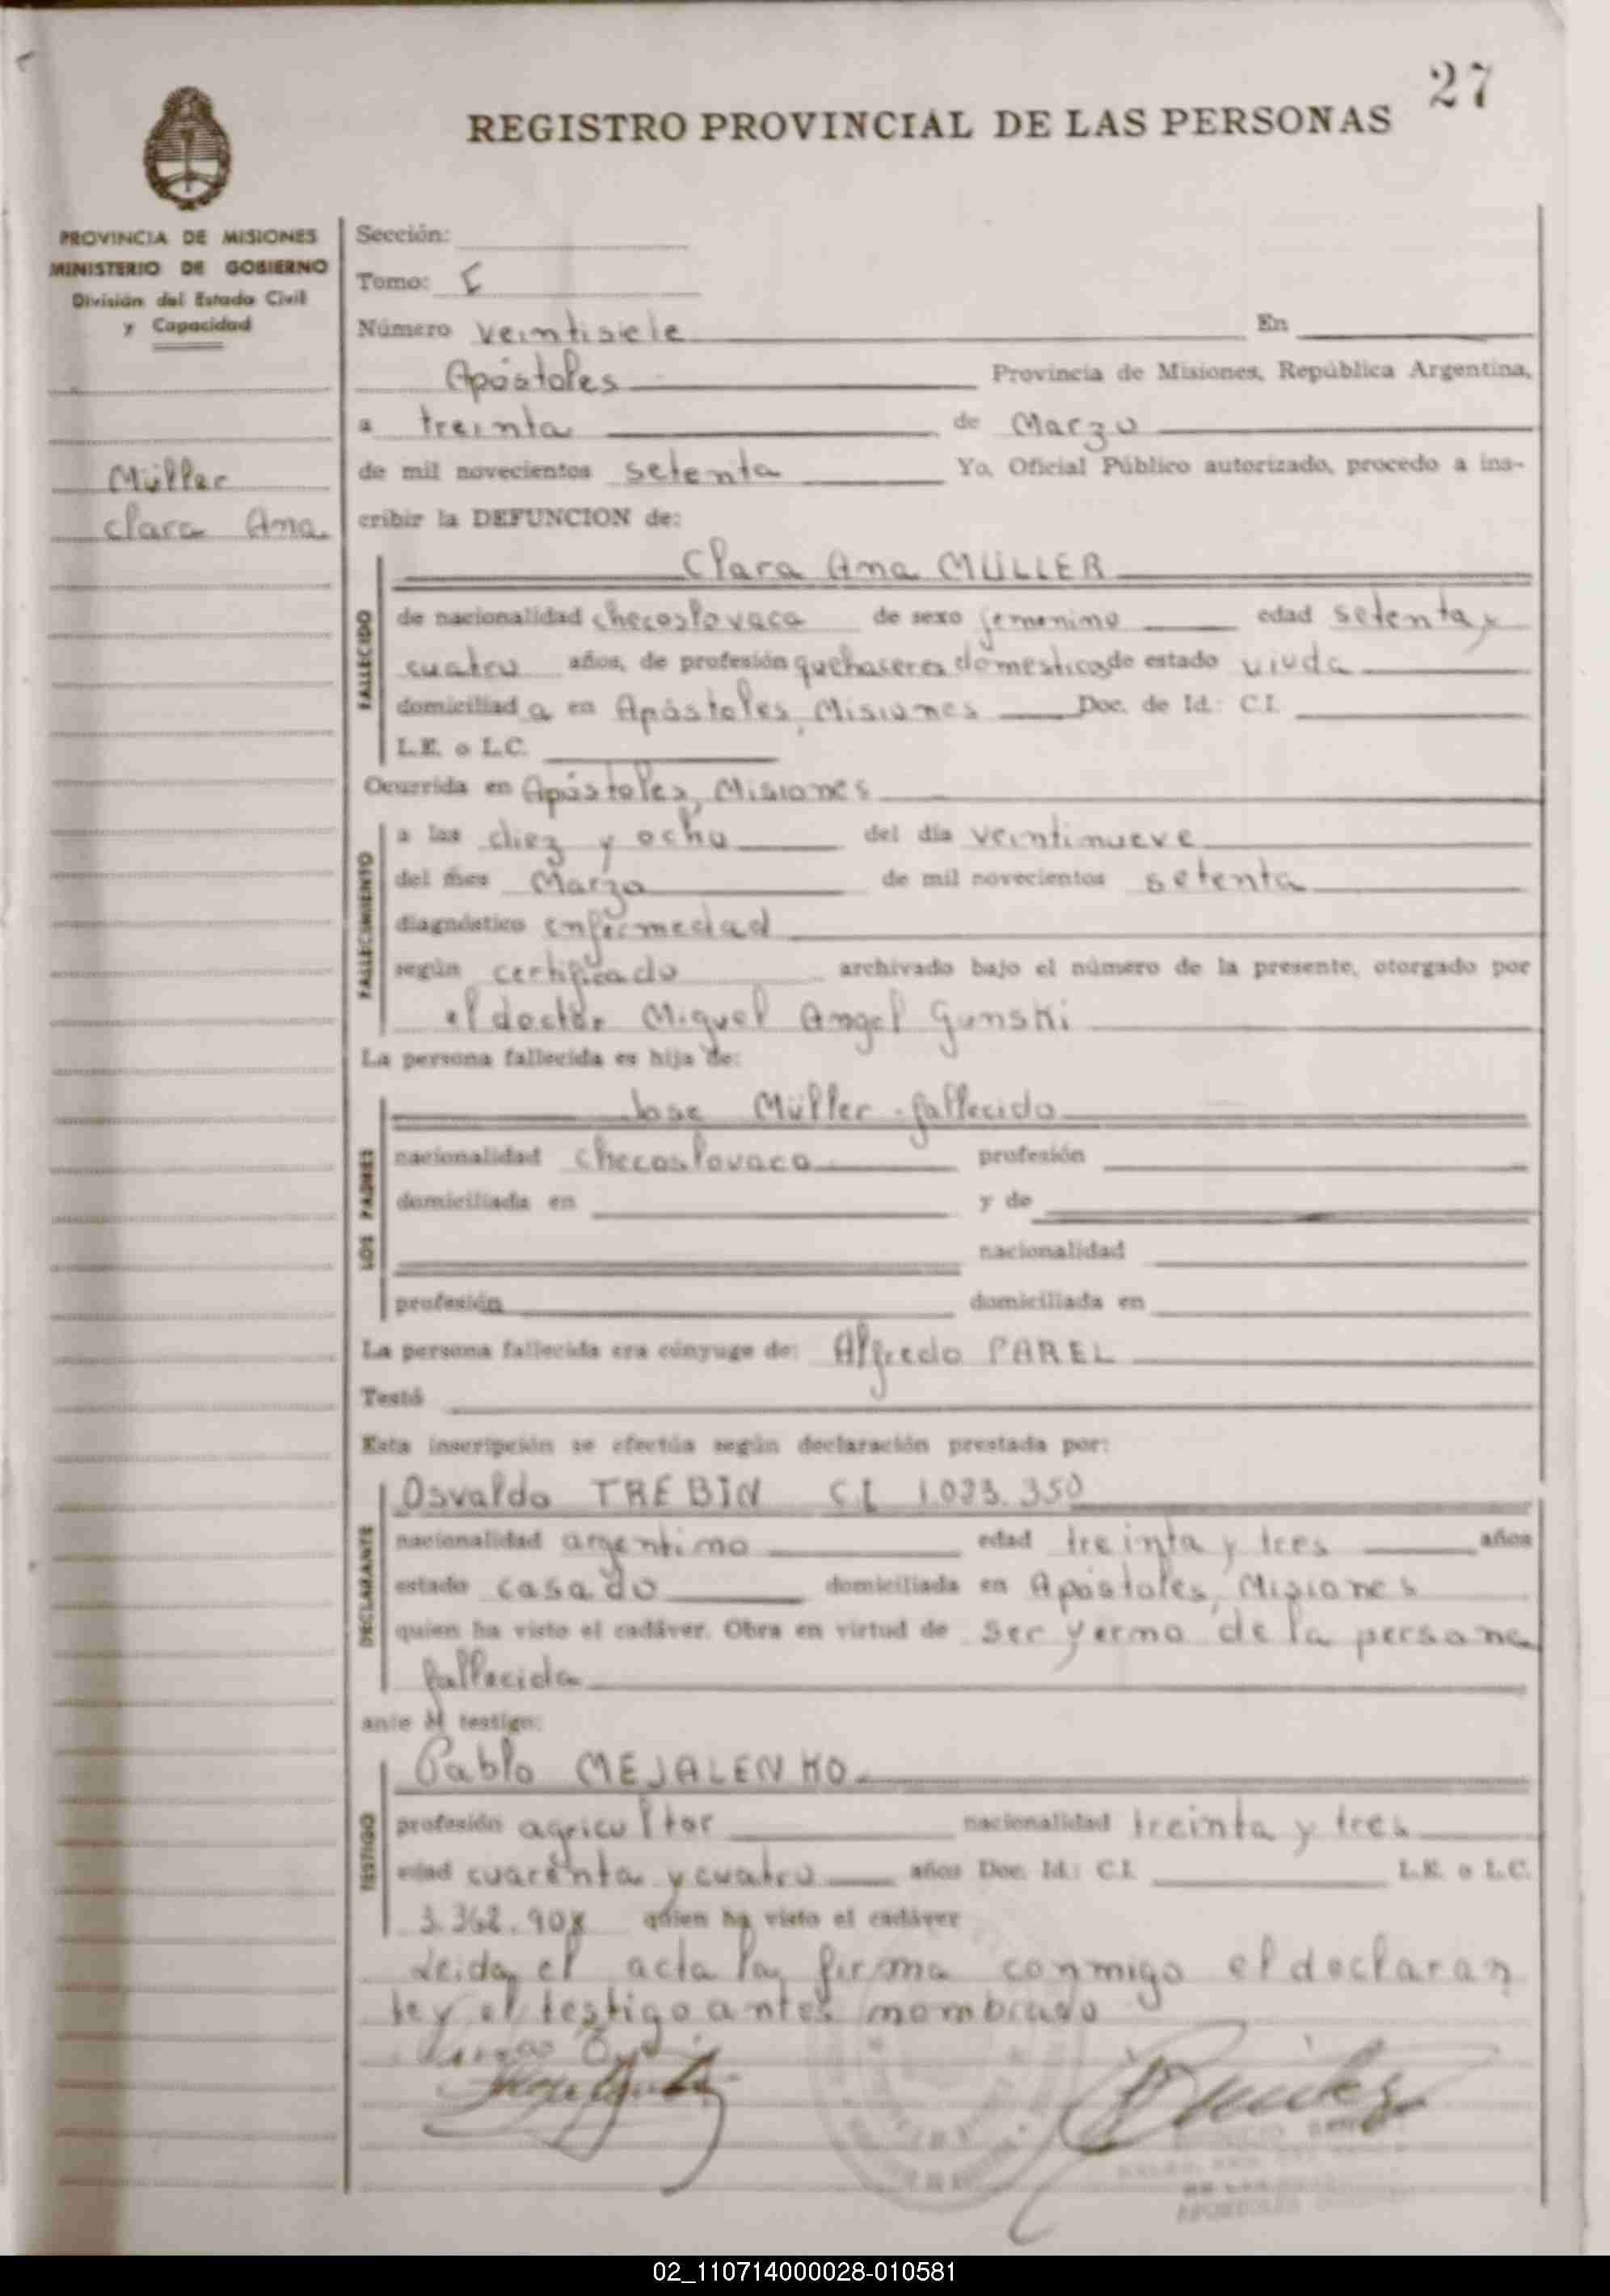 27
REGISTRO PROVINCIAL DE LAS PERSONAS
PROVINCIA DE MISIONES
MINISTERIO DE GOBIERNO
División del Estado Civil
y Capacidad
Müller
Clara Ana
Sección:
Tomo: E
Número veintisiete En
Apóstoles Provincia de Misiones, República Argentina,
a treinta de Marzo
de mil novecientos setenta Yo, Oficial Público autorizado, procedo a ins-
cribir la DEFUNCION de:
Clara Ana MÜLLER
FALLECIDO
de nacionalidad checoslovaca de sexo femenino edad setenta y
cuatro años, de profesión quehaceres domesticos de estado viuda
domiciliad a en Apóstoles, Misiones Doc. de Id.: C.I.
L.E. o L.C.
Ocurrida en Apóstoles, Misiones
FALLECIMIENTO
a las diez y ocho del día veintinueve
del mes Marzo de mil novecientos setenta
diagnóstico enfermedad
según certificado archivado bajo el número de la presente, otorgado por
el doctor Miguel Angel Gunski
La persona fallecida es hija de:
LOS PADRES
Jose Müller - fallecido
nacionalidad checoslovaca profesión
domiciliada en y de
nacionalidad
profesión domiciliada en
La persona fallecida era cónyuge de: Alfredo PAREL
Testó
Esta inscripción se efectúa según declaración prestada por:
DECLARANTE
Osvaldo TREBIN CI 1.023.350
nacionalidad argentino edad treinta y tres años
estado casado domiciliada en Apostoles, Misiones
quien ha visto el cadáver. Obra en virtud de ser yerno de la persona
fallecida
ante el testigo:
TESTIGO
Pablo MEJALENKO
profesión agricultor nacionalidad treinta y tres
edad cuarenta y cuatro años Doc. Id.: C.I. L.E. o L.C.
3.362.908 quien ha visto el cadáver
Leida el acta la firma conmigo el declaran
te y el testigo antes nombrado
02_110714000028-010581